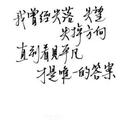 我曾经失落 失望
失掉方向
直到看见平凡
才是唯一的答案